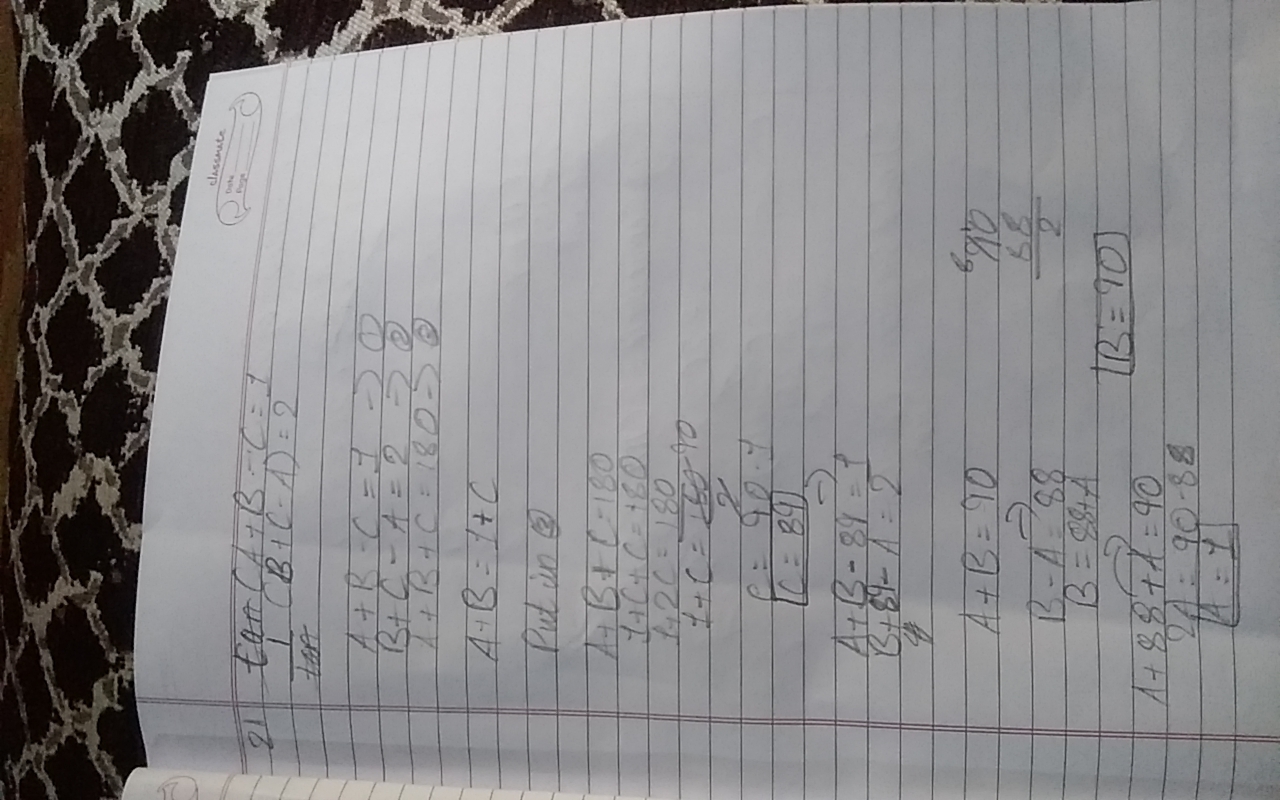 classmate
Date
Page
21 tan (A+B-C=1
1 (B+C-A)=2
tan
A+B-C=1 => ①
B+C-A=2 => ②
A+B+C=180 => ③
A+B=1+C
Put in ③
A+B+C=180
1+C+C=180
1+2C=180
1+C=180 90
2
C=90-1
C=89
A+B-89=1
B+89-A=2
A+B=90
90
88
2
B-A=88
B=88+A
B=90
A+88+A=90
2A=90-88
A=1